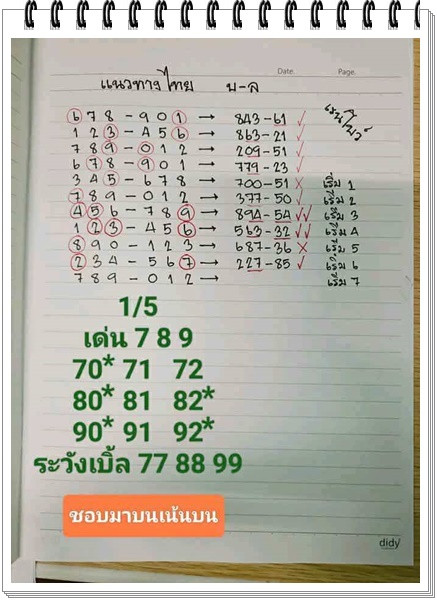 Date. Page.
แนวทางไทย บ-ล
เรนโบว์
678-901 → 843-61 ✓
123-456 → 863-21 ✓
789-012 → 209-51 ✓
678-901 → 779-23 ✓
345-678 → 700-51 × เริ่ม 1
789-012 → 377-50 ✓ เริ่ม 2
456-789 → 894-54 ✓✓ เริ่ม 3
123-456 → 563-32 ✓✓ เริ่ม 4
890-123 → 687-36 × เริ่ม 5
234-567 → 227-85 ✓ เริ่ม 6
789-012 → เริ่ม 7
1/5
เด่น 7 8 9
70* 71 72
80* 81 82*
90* 91 92*
ระวังเบิ้ล 77 88 99
ชอบมาบนเน้นบน
didy